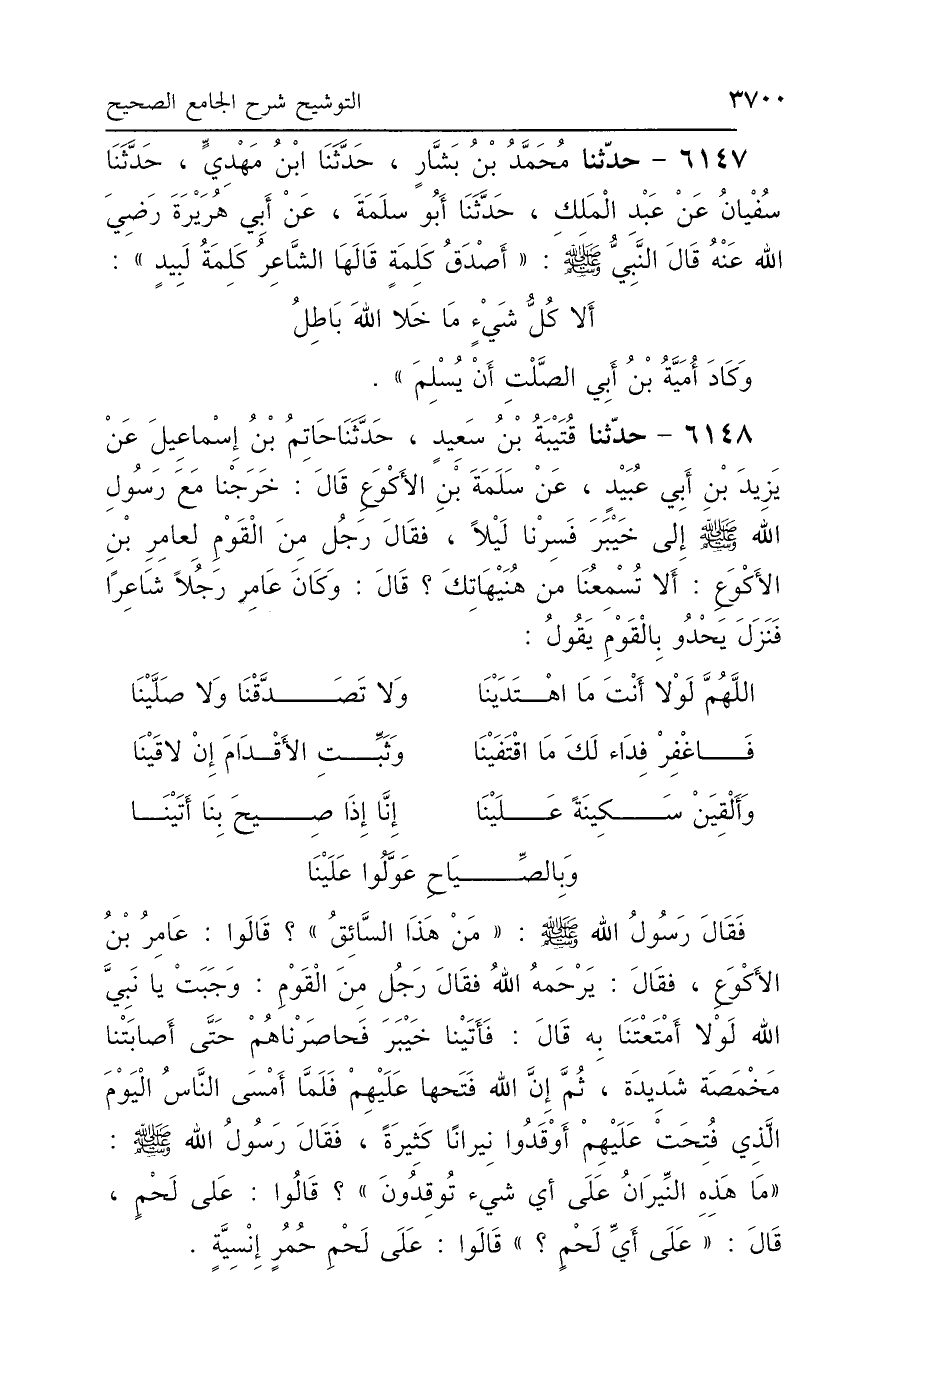 ٣٧٠٠ التوشيح شرح الجامع الصحيح
٦١٤٧ - حدّثنا مُحَمَّدُ بْنُ بَشَّارٍ ، حَدَّثَنَا ابْنُ مَهْدِيٍّ ، حَدَّثَنَا
سُفْيانُ عَنْ عَبْدِ الْمَلِكِ ، حَدَّثَنَا أَبُو سلَمَةَ ، عَنْ أَبِي هُرَيْرَةَ رَضِيَ
الله عَنْهُ قَالَ النَّبِيُّ ﷺ : « أَصْدَقُ كَلِمَةٍ قَالَهَا الشَّاعِرُ كَلِمَةُ لَبِيد » :
أَلا كُلُّ شَيْءٍ مَا خَلا اللهَ بَاطِلُ
وَكَادَ أُمَيَّةُ بْنُ أَبِي الصَّلْتِ أَنْ يُسْلِمَ » .
٦١٤٨ - حدّثنا قُتَيْبَةُ بْنُ سَعِيدٍ ، حَدَّثَنَاحَاتِمُ بْنُ إِسْماعِيلَ عَنْ
يَزِيدَ بْنِ أَبي عُبَيْدٍ ، عَنْ سَلَمَةَ بْنِ الأَكْوَعِ قَالَ : خَرَجْنا مَعَ رَسُولِ
الله ﷺ إِلى خَيْبَرَ فَسِرْنا لَيْلاً ، فقَالَ رَجُل مِنَ الْقَوْمِ لِعامِرِ بْنِ
الأَكْوَعِ : أَلا تُسْمِعُنَا من هُنَيْهَاتِكَ ؟ قَالَ : وَكَانَ عَامِر رَجُلاً شَاعِرًا
فَنَزَلَ يَحْدُو بِالْقَوْمِ يَقُولُ :
اللَّهُمَّ لَوْلا أَنْتَ مَا اهْتَدَيْنَا وَلا تَصَدَّقْنَا وَلا صَلَّيْنَا
فَاغْفِرْ فِدَاء لَكَ مَا اقْتَفَيْنَا وَثَبِّتِ الأَقْدَامَ إِنْ لاقَيْنَا
وَأَلْقِيَنْ سَكِينَةً عَلَيْنَا إِنَّا إِذَا صِيحَ بِنَا أَتَيْنَا
وَبِالصِّيَاحِ عَوَّلُوا عَلَيْنَا
فَقَالَ رَسُولُ الله ﷺ : « مَنْ هَذَا السَّائِقُ » ؟ قَالَوا : عَامِرُ بْنُ
الأَكْوَعِ ، فقَالَ : يَرْحَمه اللهُ فقَالَ رَجُل مِنَ الْقَوْمِ : وَجَبَتْ يا نَبِيَّ
الله لَوْلا أَمْتَعْتَنَا بِه قَالَ : فَأَتَيْنا خَيْبَرَ فَحاصَرْناهُمْ حَتَّى أَصابَتْنا
مَخْمَصَة شَدِيدَة ، ثُمَّ إِنَّ الله فَتَحها عَلَيْهِمْ فَلَمَّا أَمْسَى النَّاسُ الْيَوْمَ
الَّذِي فُتِحَتْ عَلَيْهِمْ أَوْقَدُوا نيرانًا كَثِيرَةً ، فقَالَ رَسُولُ الله ﷺ :
«مَا هَذِهِ النِّيرَانُ عَلَى أي شيء تُوقِدُونَ » ؟ قَالُوا : عَلى لَحْمٍ ،
قَالَ : « عَلَى أَيِّ لَحْمٍ ؟ » قَالَوا : عَلَى لَحْمِ حُمُرٍ إِنْسِيَّةٍ .